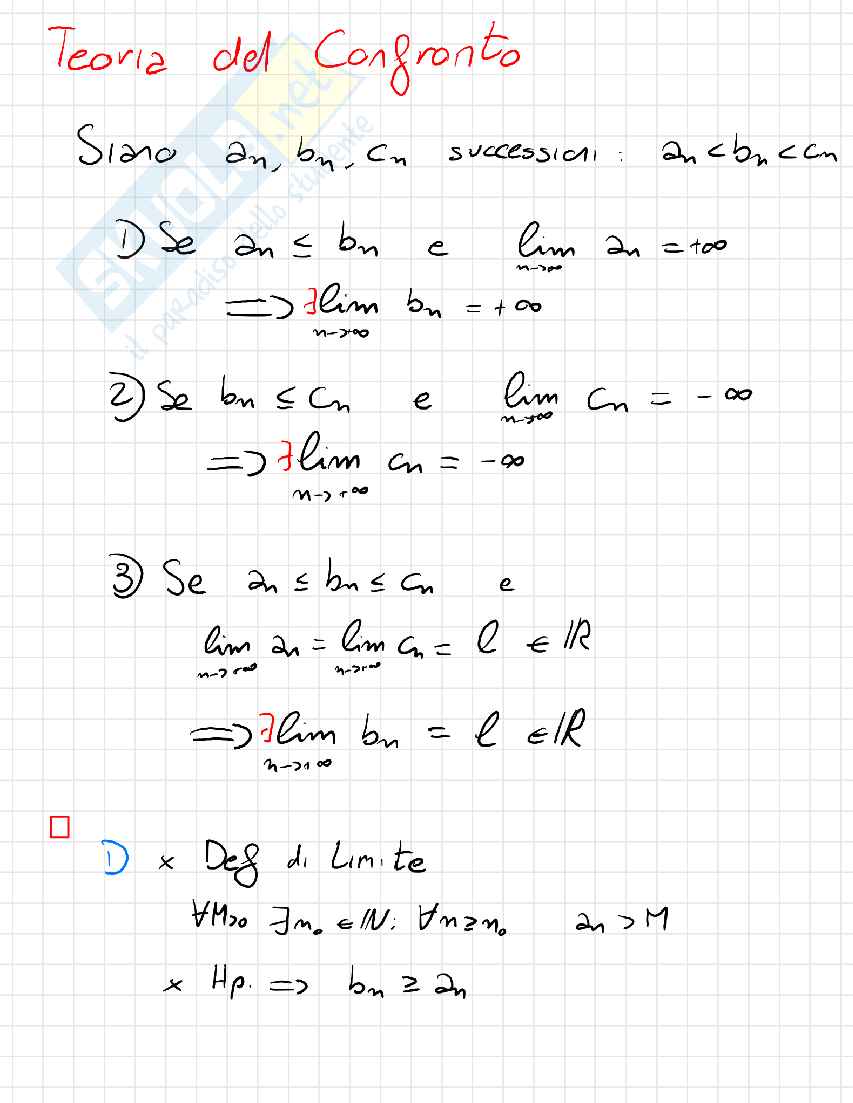 Teoria del Confronto
Siano an, bn, cn successioni: an < bn < cn
1) Se an ≤ bn e lim an = +∞
n→∞
⟹ ∃ lim bn = +∞
n→+∞
2) Se bn ≤ cn e lim cn = -∞
n→∞
⟹ ∃ lim cn = -∞
n→+∞
3) Se an ≤ bn ≤ cn e
lim an = lim cn = l ∈ ℝ
n→+∞ n→+∞
⟹ ∃ lim bn = l ∈ ℝ
n→+∞
1) × Def di Limite
∀M>0 ∃n₀ ∈ ℕ: ∀n≥n₀ an > M
× Hp. ⟹ bn ≥ an
SKUOLA.net
il paradiso dello studente